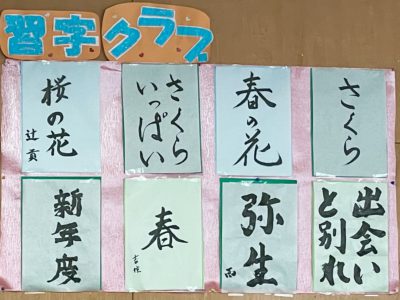 習字クラブ
桜の花
辻貢
さくら
いっぱい
春の花
さくら
新年度
春
弥生
出会い
と別れ